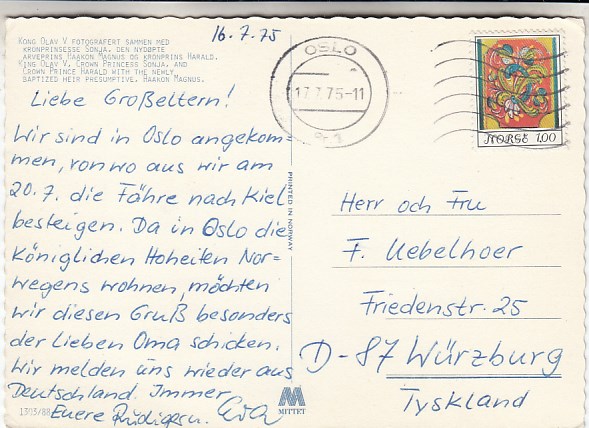 16.7.75
KONG OLAV V FOTOGRAFERT SAMMEN MED
KRONPRINSESSE SONJA, DEN NYDØPTE
ARVEPRINS HAAKON MAGNUS OG KRONPRINS HARALD.
KING OLAV V, CROWN PRINCESS SONJA, AND
CROWN PRINCE HARALD WITH THE NEWLY
BAPTIZED HEIR PRESUMPTIVE, HAAKON MAGNUS.
Liebe Großeltern!
Wir sind in Oslo angekom=
men, von wo aus wir am
20.7. die Fähre nach Kiel
besteigen. Da in Oslo die
königlichen Hoheiten Nor=
wegens wohnen, möchten
wir diesen Gruß besonders
der lieben Oma schicken.
Wir melden uns wieder aus
Deutschland. Immer
Euere Rüdiger u. Eva
1303/88
PRINTED IN NORWAY
MITTET
OSLO
17.7.75-11
NORGE 1,00
Herr och Fru
F. Uebelhoer
Friedenstr. 25
D-87 Würzburg
Tyskland